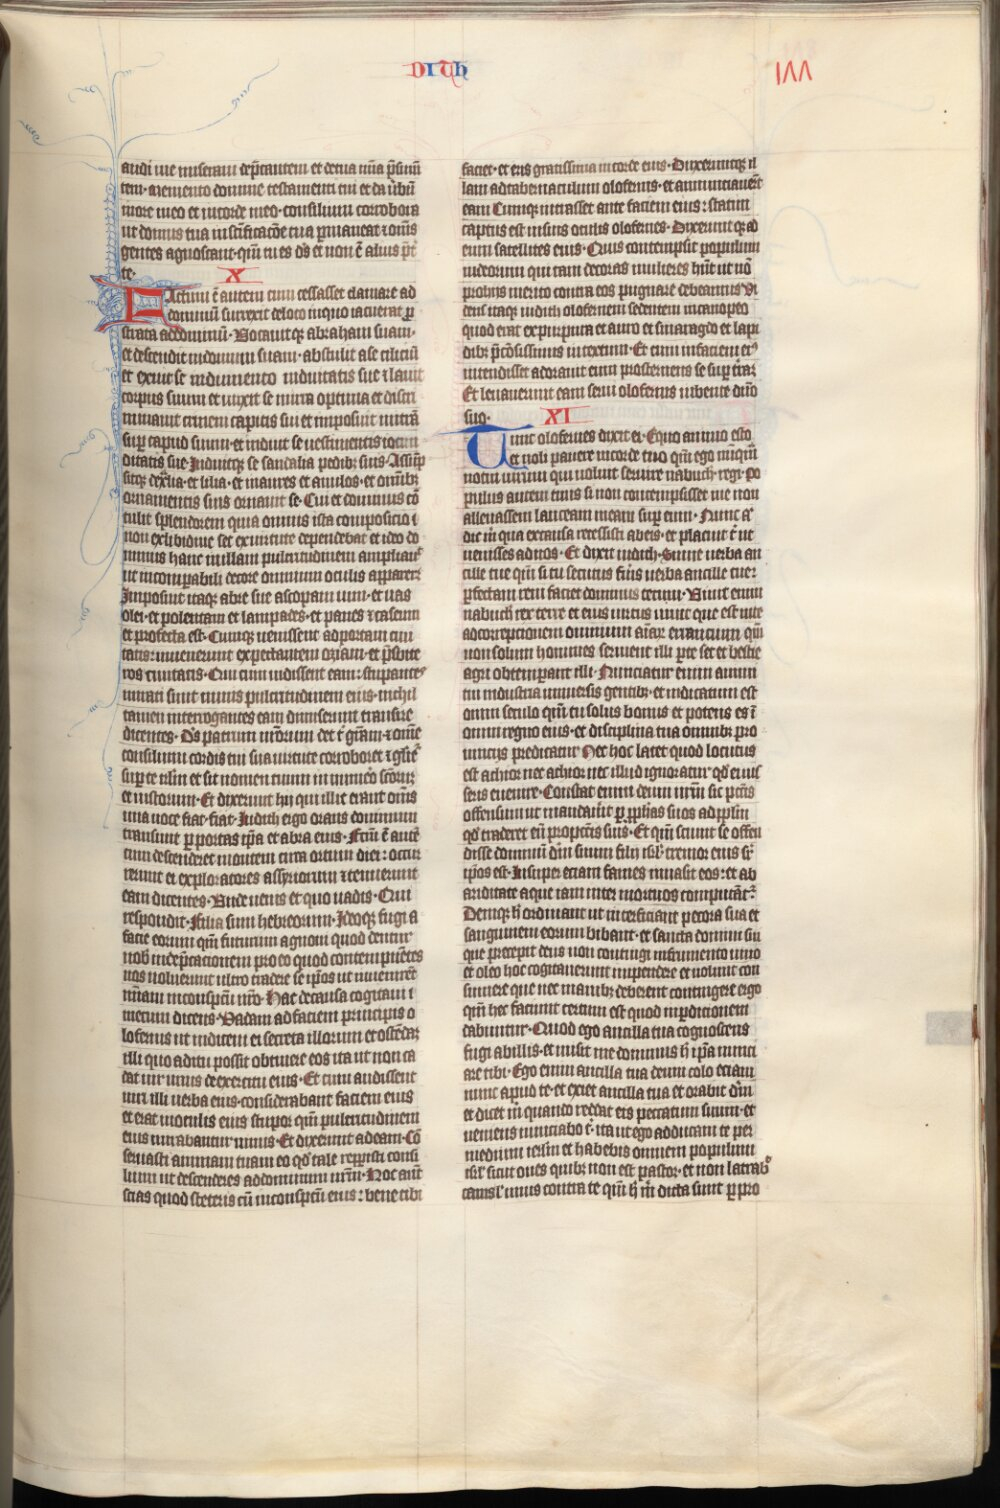 DITh
audi me miseram dep̄cantem et de tua mīa p̄sumē
tem· Memento domine testamenti tui et da ūbū
in ore meo et in corde meo· consilium corrobora
ut domus tua in sc̄ificacōe tua p̄maneat ⁊ om̄s
gentes agnoscant· qm̄ tu es ds̄ et non ē alius p̄t
te·
X
Factum ē autem cum cessasset clamare ad
dominū surrexit de loco in quo iacuerat p̄
strata ad dominū· Vocauitqꝫ abraham suam·
et descendit in domum suam· abstulit a se ciliciū
et exuit se indumento uiduitatis sue ⁊ lauit
corpus suum et unxit se mirra optima et discri
minauit crinem capitis sui et imposuit mitrā
sup̄ caput suum· et induit se uestimentis iocun
ditatis sue· Induitqꝫ se sandalia pedibꝫ suis· Assūp
sitqꝫ dextralia et lilia· et inaures et anulos· et omībꝫ
ornamentis suis ornauit se· Cui et dominus cō
tulit splendorem quia omnis ista composicio
non ex libidine set ex uirtute dependebat et ideo do
minus hanc in illam pulcritudinem ampliauit
ut incomparabili decore omnium oculis appareret
Imposuit itaqꝫ abre sue ascopam uini· et uas
olei· et polentam et lampates· et panes ⁊ caseum
et profecta est· Cumqꝫ uenissent ad portam ciui
tatis: inuenerunt expectantem oziam· et p̄sbite
ros ciuitatis· Qui cum uidissent eam: stupentes
mirati sunt nimis pulcritudinem eius· nichil
tamen interrogantes eam dimiserunt transire
dicentes· Ds̄ patrum nr̄orum det t̄ grām· ⁊ om̄e
consilium cordis tui sua uirtute corroboret
sup̄ te ierl̄m et sit nomen tuum in numero scōrum
et iustorum· Et dixerunt hii qui illic erant om̄s
una uoce fiat· fiat· Iudith uero orans dominum
transiuit p̄ portas ip̄a et abra eius· Fcm̄ ē autē
cum descenderet montem circa ortum diei: occur
rerunt ei exploratores assyriorum ⁊ tenuerunt
eam dicentes· Unde uenis et quo uadis· Que
respondit· Filia sum hebreorum· Ideoqꝫ fugi a
facie eorum qm̄ futurum agnoui quod dentur
uob̄ in dep̄dacionem pro eo quod contempnētes
uos noluerunt ultro tradere se ip̄os ut inuenirēt
mīam in conspectu uīo· Hac de causa cogitaui
mecum dicens· Vadam ad faciem principis o
lofernis ut indicem ei secreta illorum et ostēdā
illi quo aditu possit obtinere eos ita ut non ca
dat uir unus de exercitu eius· Et cum audissent
uiri illi uerba eius· considerabant faciem eius
et erat in oculis eius stupor qm̄ pulcritudinem
eius mirabantur nimis· Et dixerunt ad eam· Cō
seruasti animam tuam eo qd̄ tale repperisti consi
lium ut descenderes ad dominum nrm̄· Hoc autē
scias quod steteris cū in conspectu eius: bene tibi
faciet· et eris gratissima in corde eius· Dixeruntqꝫ il
lam ad tabernaculum olofernis· et annunciauerūt
eam Cumqꝫ intrasset ante faciem eius: statim
captus est in suis oculis olofernes· Dixerunt qꝫ ad
eum satellites eius· Quis contempnit populum
iudeorum qui tam decoras mulieres hn̄t ut nō
pro hijs merito contra eos pugnare debeamus Vi
dens itaqꝫ iudith olofernem sedentem in canopeo
quod erat ex purpura et auro et smaragdo et lapi
dibꝫ p̄ciosissimis intextum· Et cum in faciem eiꝰ
intendisset adorauit eum prosternens se sup̄ t̄rā
Et leuauerunt eam serui olofernis iubente dn̄o
suo·
XI
Tunc olofernes dixit ei· Equo animo esto
et noli pauere in corde tuo qm̄ ego nunqm̄
nocui uirum qui uoluit seruire nabuch· regi· Po
pulus autem tuus si non contempsisset me non
alleuassem lanceam meam sup̄ eum· Nunc aū
dic m̄ qua ex causa recessisti ab eis· et placuit t̄ ut
uenisses ad nos· Et dixit iudith· Sume uerba an
cille tue qm̄ si tu secutus fueris uerba ancille tue:
p̄fectam rem faciet dominus tecum· Viuit enim
nabuch̄ rex terre et eius uirtus uiuit que est in te
ad correptionem omnium aīarum errancium qm̄
non solum homines seruient illi p̄ te set et bestie
agri obtemperant illi· Nunciatur enim animi
tui industria uniuersis gentibꝫ· et indicatum est
omni seculo qm̄ tu solus bonus et potens es ī
omni regno eius· et disciplina tua omnibꝫ pro
uincijs predicatur Nec hoc latet quod locutus
est achior nec achior nec illud ignoratur qd̄ eum ius
seris euenire· Constat enim deum nrm̄ sic pctīs
offensum ut mandauit p̄ pph̄as suos ad pplm̄
qd̄ traderet eū pro pctīs suis· Et qm̄ sciunt se offen
disse dominū dm̄ suum filij isrl̄· tremor eius sup̄
ip̄os est· Insuper eciam fames inuasit eos: et ab
ariditate aque iam inter mortuos computātur
Deniqꝫ h̄ ordinant ut interficiant pecora sua et
sanguinem eorum bibant· et sancta domini sui
que precepit deus non contingi in frumento uino
et oleo hoc cogitauerunt inpendere et uolunt con
sumere que nec manibꝫ deberent contingere ergo
qm̄ hec faciunt certum est quod in p̄dicionem
dabuntur· Quod ego ancilla tua cognoscens
fugi ab illis· et misit me dominus h̄ ip̄a nunci
are tibi· Ego enim ancilla tua deum colo eciam
nunc apud te· et exiet ancilla tua et orabit dm̄
et dicet m̄ quando reddat eis peccatum suum· et
ueniens nunciabo t̄· ita ut ego adducam te per
mediam ierlm̄ et habebis omnem populum
isrl̄· sicut oues quibꝫ non est pastor· et non latrabit
canis l̄ unus contra te qm̄ h̄ m̄ dicta sunt p̄ pro